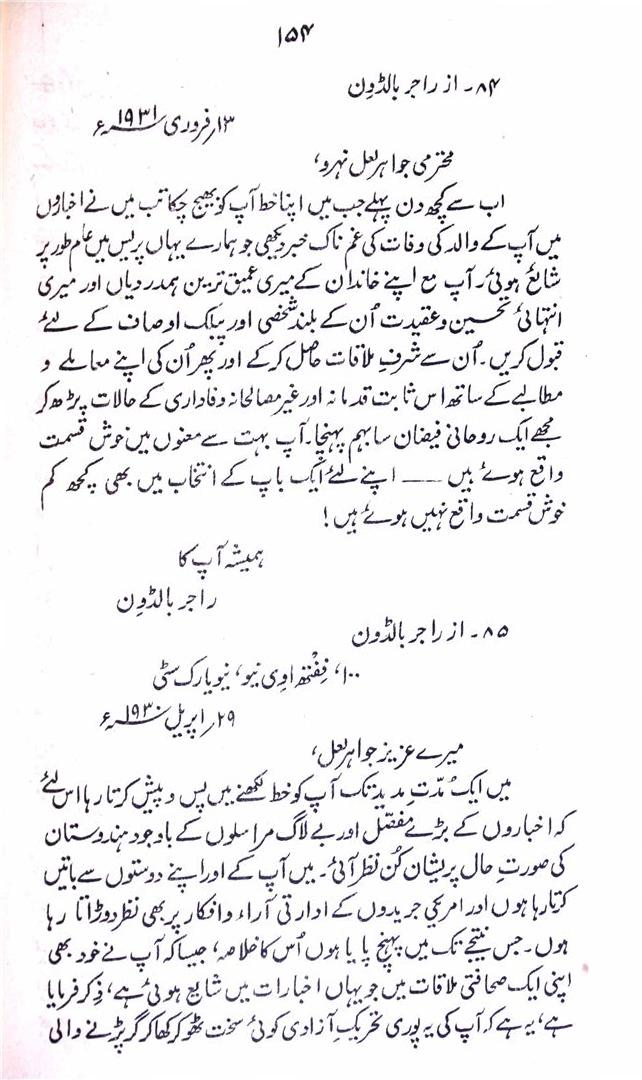 ۱۵۴
۸۴۔ از راجر بالڈوِن
۱۳؍ فروری ۱۹۳۱ء
محترمی جواہر لعل نہرو،
اب سے کچھ دن پہلے جب میں اپنا خط آپ کو بھیج چکا تب میں نے اخباروں
میں آپ کے والد کی وفات کی غم ناک خبر دیکھی جو ہمارے یہاں پریس میں عام طور پر
شایع ہوئی۔ آپ مع اپنے خاندان کے میری عمیق ترین ہمدردیاں اور میری
انتہائی تحسین و عقیدت اُن کے بلند شخصی اور پبلک اوصاف کے لئے
قبول کریں۔ اُن سے شرفِ ملاقات حاصل کرکے اور پھر اُن کی اپنے معاملے و
مطالبے کے ساتھ اس ثابت قدمانہ اور غیر مصالحانہ وفاداری کے حالات پڑھ کر
مجھے ایک روحانی فیضان سا بہم پہنچا۔ آپ بہت سے معنوں میں خوش قسمت
واقع ہوئے ہیں —— اپنے لئے ایک باپ کے انتخاب میں بھی کچھ کم
خوش قسمت واقع نہیں ہوئے ہیں!
ہمیشہ آپ کا
راجر بالڈوِن
۸۵۔ از راجر بالڈون
۱۰۰، فِفْتھ اوِی نیو، نیویارک سٹی
۲۹؍ اپریل ۱۹۳۰ء
میرے عزیز جواہر لعل،
میں ایک مُدّتِ مدید تک آپ کو خط لکھنے میں پس و پیش کرتا رہا اس لئے
کہ اخباروں کے بڑے مفصّل اور بے لاگ مراسلوں کے باوجود ہندوستان
کی صورتِ حال پریشان کُن نظر آئی۔ میں آپ کے اور اپنے دوستوں سے باتیں
کرتا رہا ہوں اور امریکی جریدوں کے ادارتی آراء و افکار پر بھی نظر دوڑاتا رہا
ہوں۔ جس نتیجے تک میں پہنچ پایا ہوں اُس کا خلاصہ، جیسا کہ آپ نے خود بھی
اپنی ایک صحافتی ملاقات میں جو یہاں اخبارات میں شایع ہوئی ہے، ذِکر فرمایا
ہے، یہ ہے کہ آپ کی یہ پوری تحریکِ آزادی کوئی سخت ٹھوکر کھا کر گر پڑنے والی